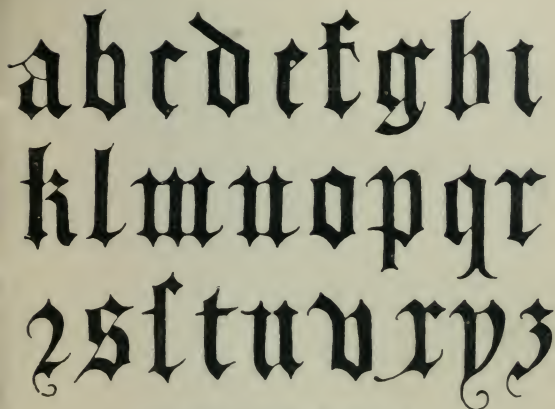 abcdefghi
klmnopqr
ꝛsſtuvxyz